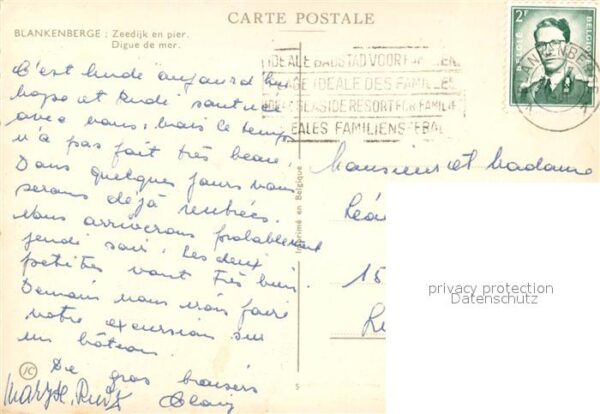 CARTE POSTALE
BLANKENBERGE : Zeedijk en pier.
Digue de mer.
2F
BELGIQUE
IDEALE BADSTAD VOOR FAMILIEN
PLAGE IDEALE DES FAMILLES
IDEAL SEASIDE RESORT FOR FAMILIES
IDEALES FAMILIENSEEBAD
C'est lundi aujourd'hui
et Rudi sont
avec nous, mais le temps
n'a pas fait très beau.
Dans quelques jours nous
serons déjà rentrés.
Nous arriverons probablement
jeudi soir. Les deux
petites vont très bien.
Demain nous irons faire
notre excursion sur
un bateau.
De gros baisers
Maryse, Rudi
Monsieur et Madame
Léon
15
Imprimé en Belgique
5
privacy protection
Datenschutz